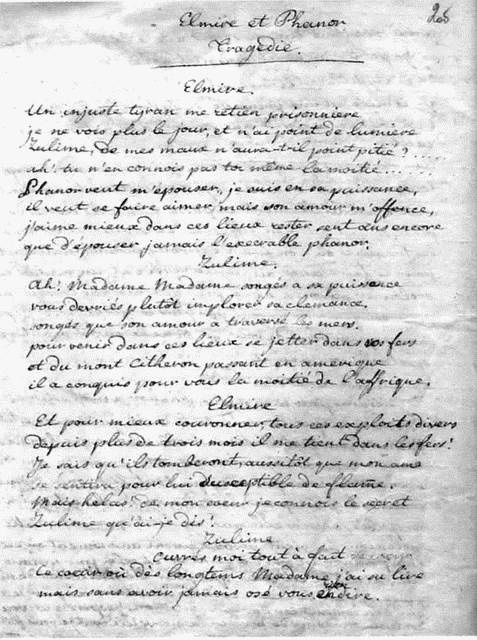 28
Elmire et Phanor
Tragedie.
Elmire.
Un injuste tyran me retien prisonniere
je ne vois plus le jour, et n'ai point de lumiere
Zulime, de mes maux n'aura-t-il point pitié ? .....
ah! tu n'en connois pas toi même la moitié.....
Phanor veut m'épouser, je suis en sa puissance,
il veut se faire aimer, mais son amour m'offence,
j'aime mieux dans ces lieux rester sent ans encore
que d'épouser jamais l'execrable phanor.
Zulime.
Ah! Madame Madame songés a sa puissence
vous devriés plutôt implorer sa clemance.
songés que son amour a traversé les mers.
pour venir dans ces lieux se jetter dans vos fers
et du mont Citheron passant en amérique
il a conquis pour vous la moitié de l'affrique.
Elmire
Et pour mieux couronner, tous ces exploits divers
depuis plus de trois mois il me tient dans les fers!
Je sais qu'ils tomberont, aussitôt que mon ame
se sentira pour lui susceptible de flame.
Mais helas! de mon coeur je connois le secret
Zulime qu'ai-je dis!
Zulime
ouvrés moi tout à fait
Ce coeur où dès longtems Madame j'ai su lire
mais sans avoir jamais osé vous dire.